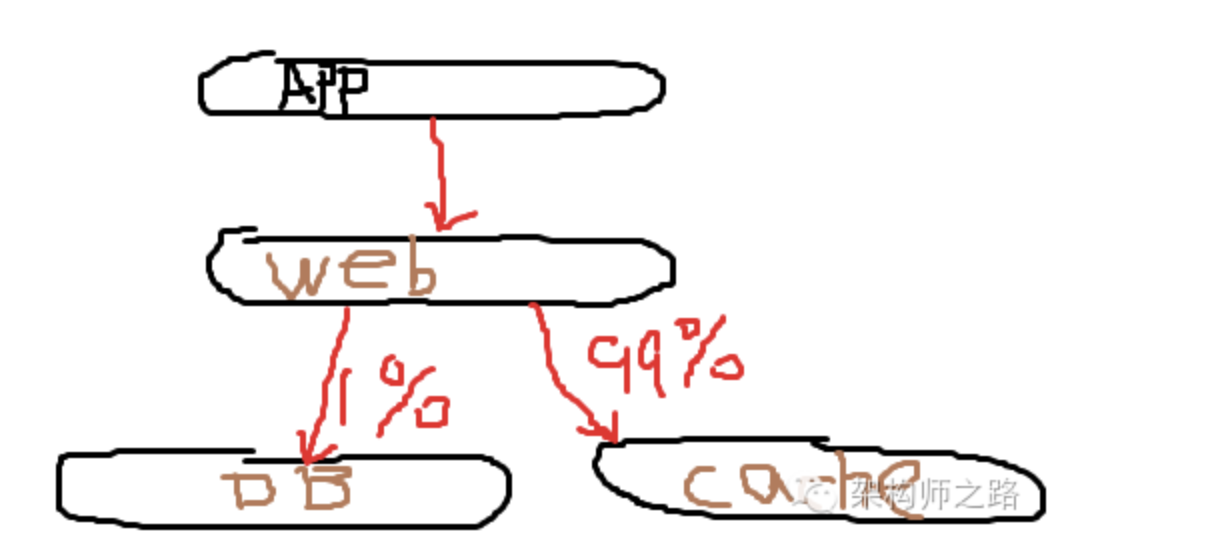 APP
web
1%
99%
DB
cache
架构师之路